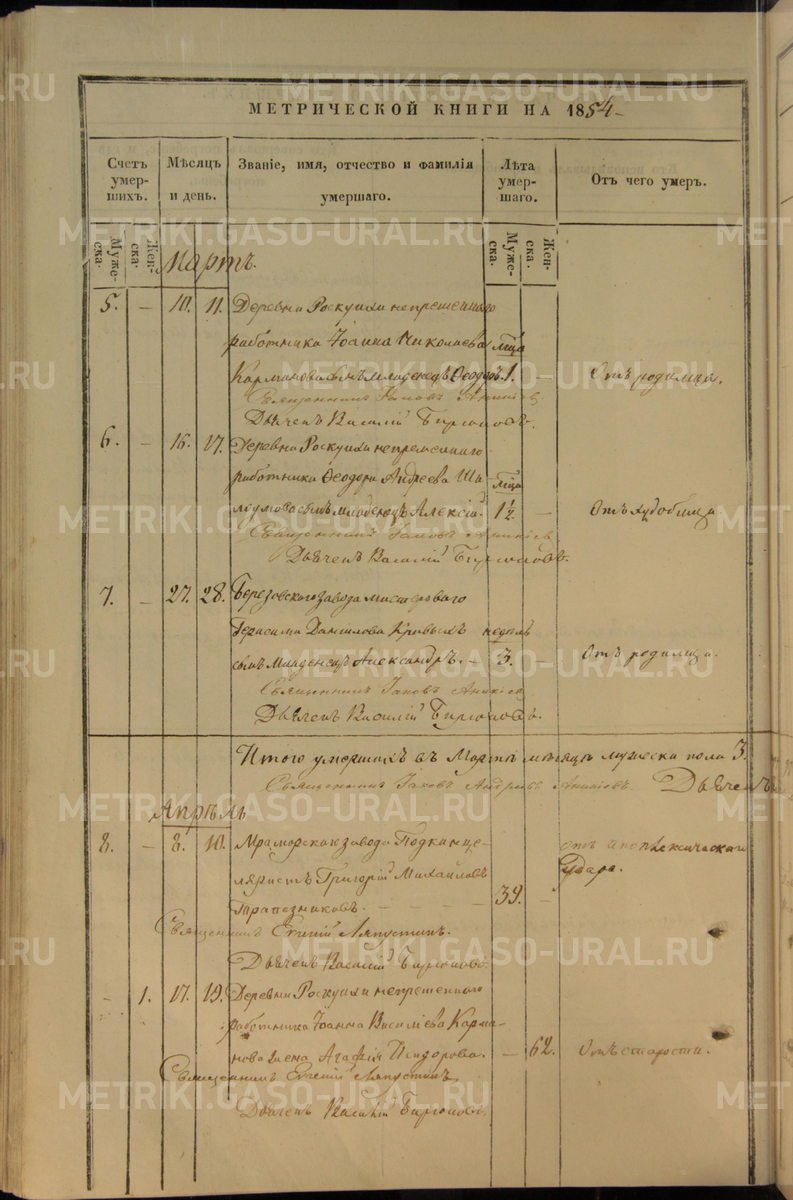 МЕТРИЧЕСКОЙ КНИГИ НА 1854
Счетъ умерших.
Мѣсяцъ и день.
Званіе, имя, отчество и фамилія умершаго.
Лѣта умершаго.
Отъ чего умеръ.
Муже-
ска.
Жен-
ска.
Муже-
ска.
Жен-
ска.
Мартъ.
5. — 10. 11. Деревни Роскуихи непременнаго
работника Іоанна Николаева мца
Карманова сынъ младенецъ Ѳеодоръ. 1. — Отъ родимца.
Священникъ Іаковъ Аникіев
Дьячекъ Василій Бирюковъ.
6. — 16. 17. Деревни Роскуихи непременнаго
работника Ѳеодора Андреева Ша- мца
лоумова сынъ младенецъ Алексій. 1½ — Отъ худобища
Священникъ Іаковъ Аникіев
Дьячекъ Василій Бирюковъ.
7. — 27. 28. Березовскаго завода мастероваго
Герасима Данилова Кривыхъ недѣль
сынъ Младенецъ Александръ. — 3. — Отъ родимца.
Священникъ Іаковъ Аникіев
Дьячекъ Василій Бирюковъ.
Итого умершихъ въ Мартѣ мѣсяцѣ мужеска пола 3.
Священникъ Іаковъ Андреевъ Аникіевъ. Дьячекъ
Апрѣль
8. — 8. 10. Мраморскаго завода Подканце- отъ апоплексическаго
ляристъ Григорій Михайловъ удара.
Трапезниковъ. — — — — 39. —
Священникъ Евгеній Ляпустинъ.
Дьячекъ Василій Бирюковъ
— 1. 17. 19. Деревни Роскуихи непременнаго
работника Іоанна Василіева Карма-
нова жена Агафія Исидорова. — 62. Отъ старости.
Священникъ Евгеній Ляпустинъ
Дьячекъ Василій Бирюковъ.
METRIKI.GASO-URAL.RU